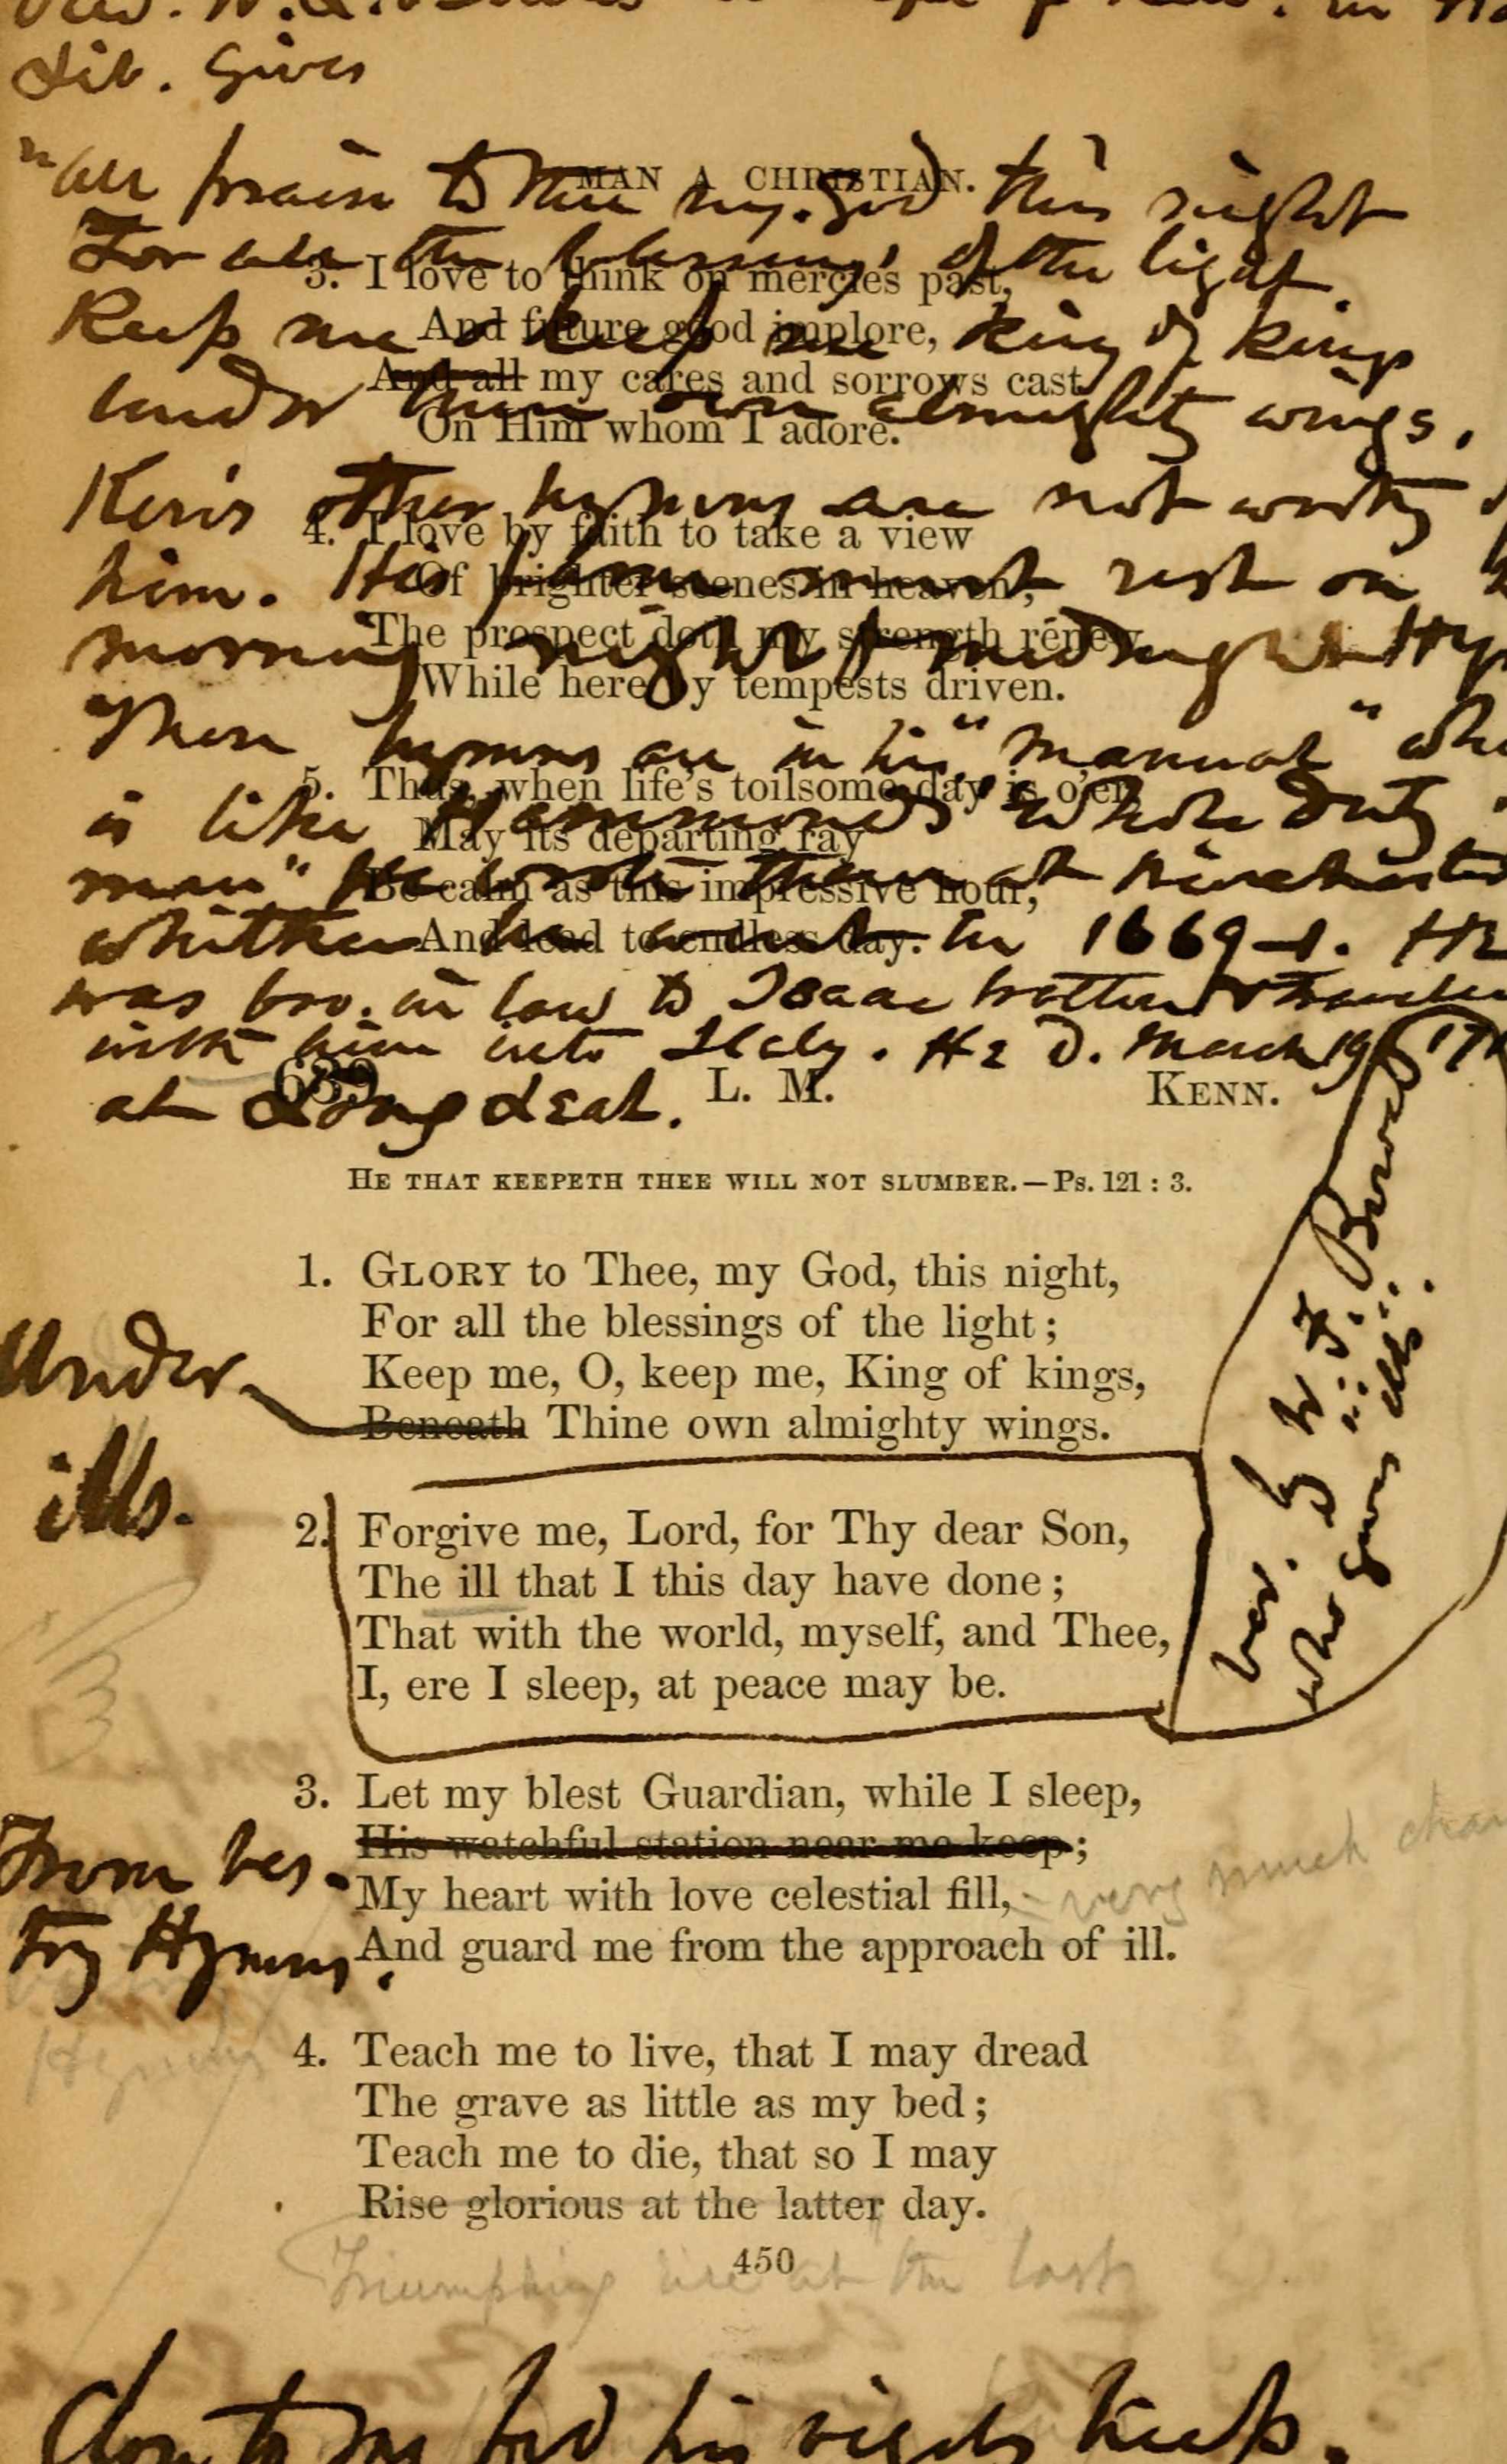 Lib. Gives
"All praise to Thee my God this night
MAN A CHRISTIAN.
For all the blessings of the light.
3. I love to think on mercies past,
Keep me o keep me King of Kings
And future good implore,
And all my cares and sorrows cast
under thine own almighty wings.
On Him whom I adore.
Ken's other hymns are not worthy
4. I love by faith to take a view
him. His fame must rest on
Of brighter scenes in heaven;
The prospect doth my strength renew,
morning night & midnight Hy
While here by tempests driven.
These hymns are in his "manual"
5. Thus, when life's toilsome day is o'er,
is like Hammond's "Whole Duty
May its departing ray
man" He wrote them at Winchester
Be calm as this impressive hour,
whither he went in 1669-
And lead to endless day.
He
was bro. in law to Isaac Walton &
with him into Italy. He d. March 19
639 L. M. KENN.
at Longleat.
HE THAT KEEPETH THEE WILL NOT SLUMBER.—Ps. 121 : 3.
1. GLORY to Thee, my God, this night,
For all the blessings of the light;
Keep me, O, keep me, King of kings,
Under
Beneath Thine own almighty wings.
ills.
2. Forgive me, Lord, for Thy dear Son,
The ill that I this day have done;
That with the world, myself, and Thee,
I, ere I sleep, at peace may be.
ver. by W. F.
who gives ills.
3. Let my blest Guardian, while I sleep,
His watchful station near me keep;
From Ves-
My heart with love celestial fill,
very much
try Hymns.
And guard me from the approach of ill.
4. Teach me to live, that I may dread
The grave as little as my bed;
Teach me to die, that so I may
Rise glorious at the latter day.
450
Triumphing rise at the last
Close to my bed his vigils keep.